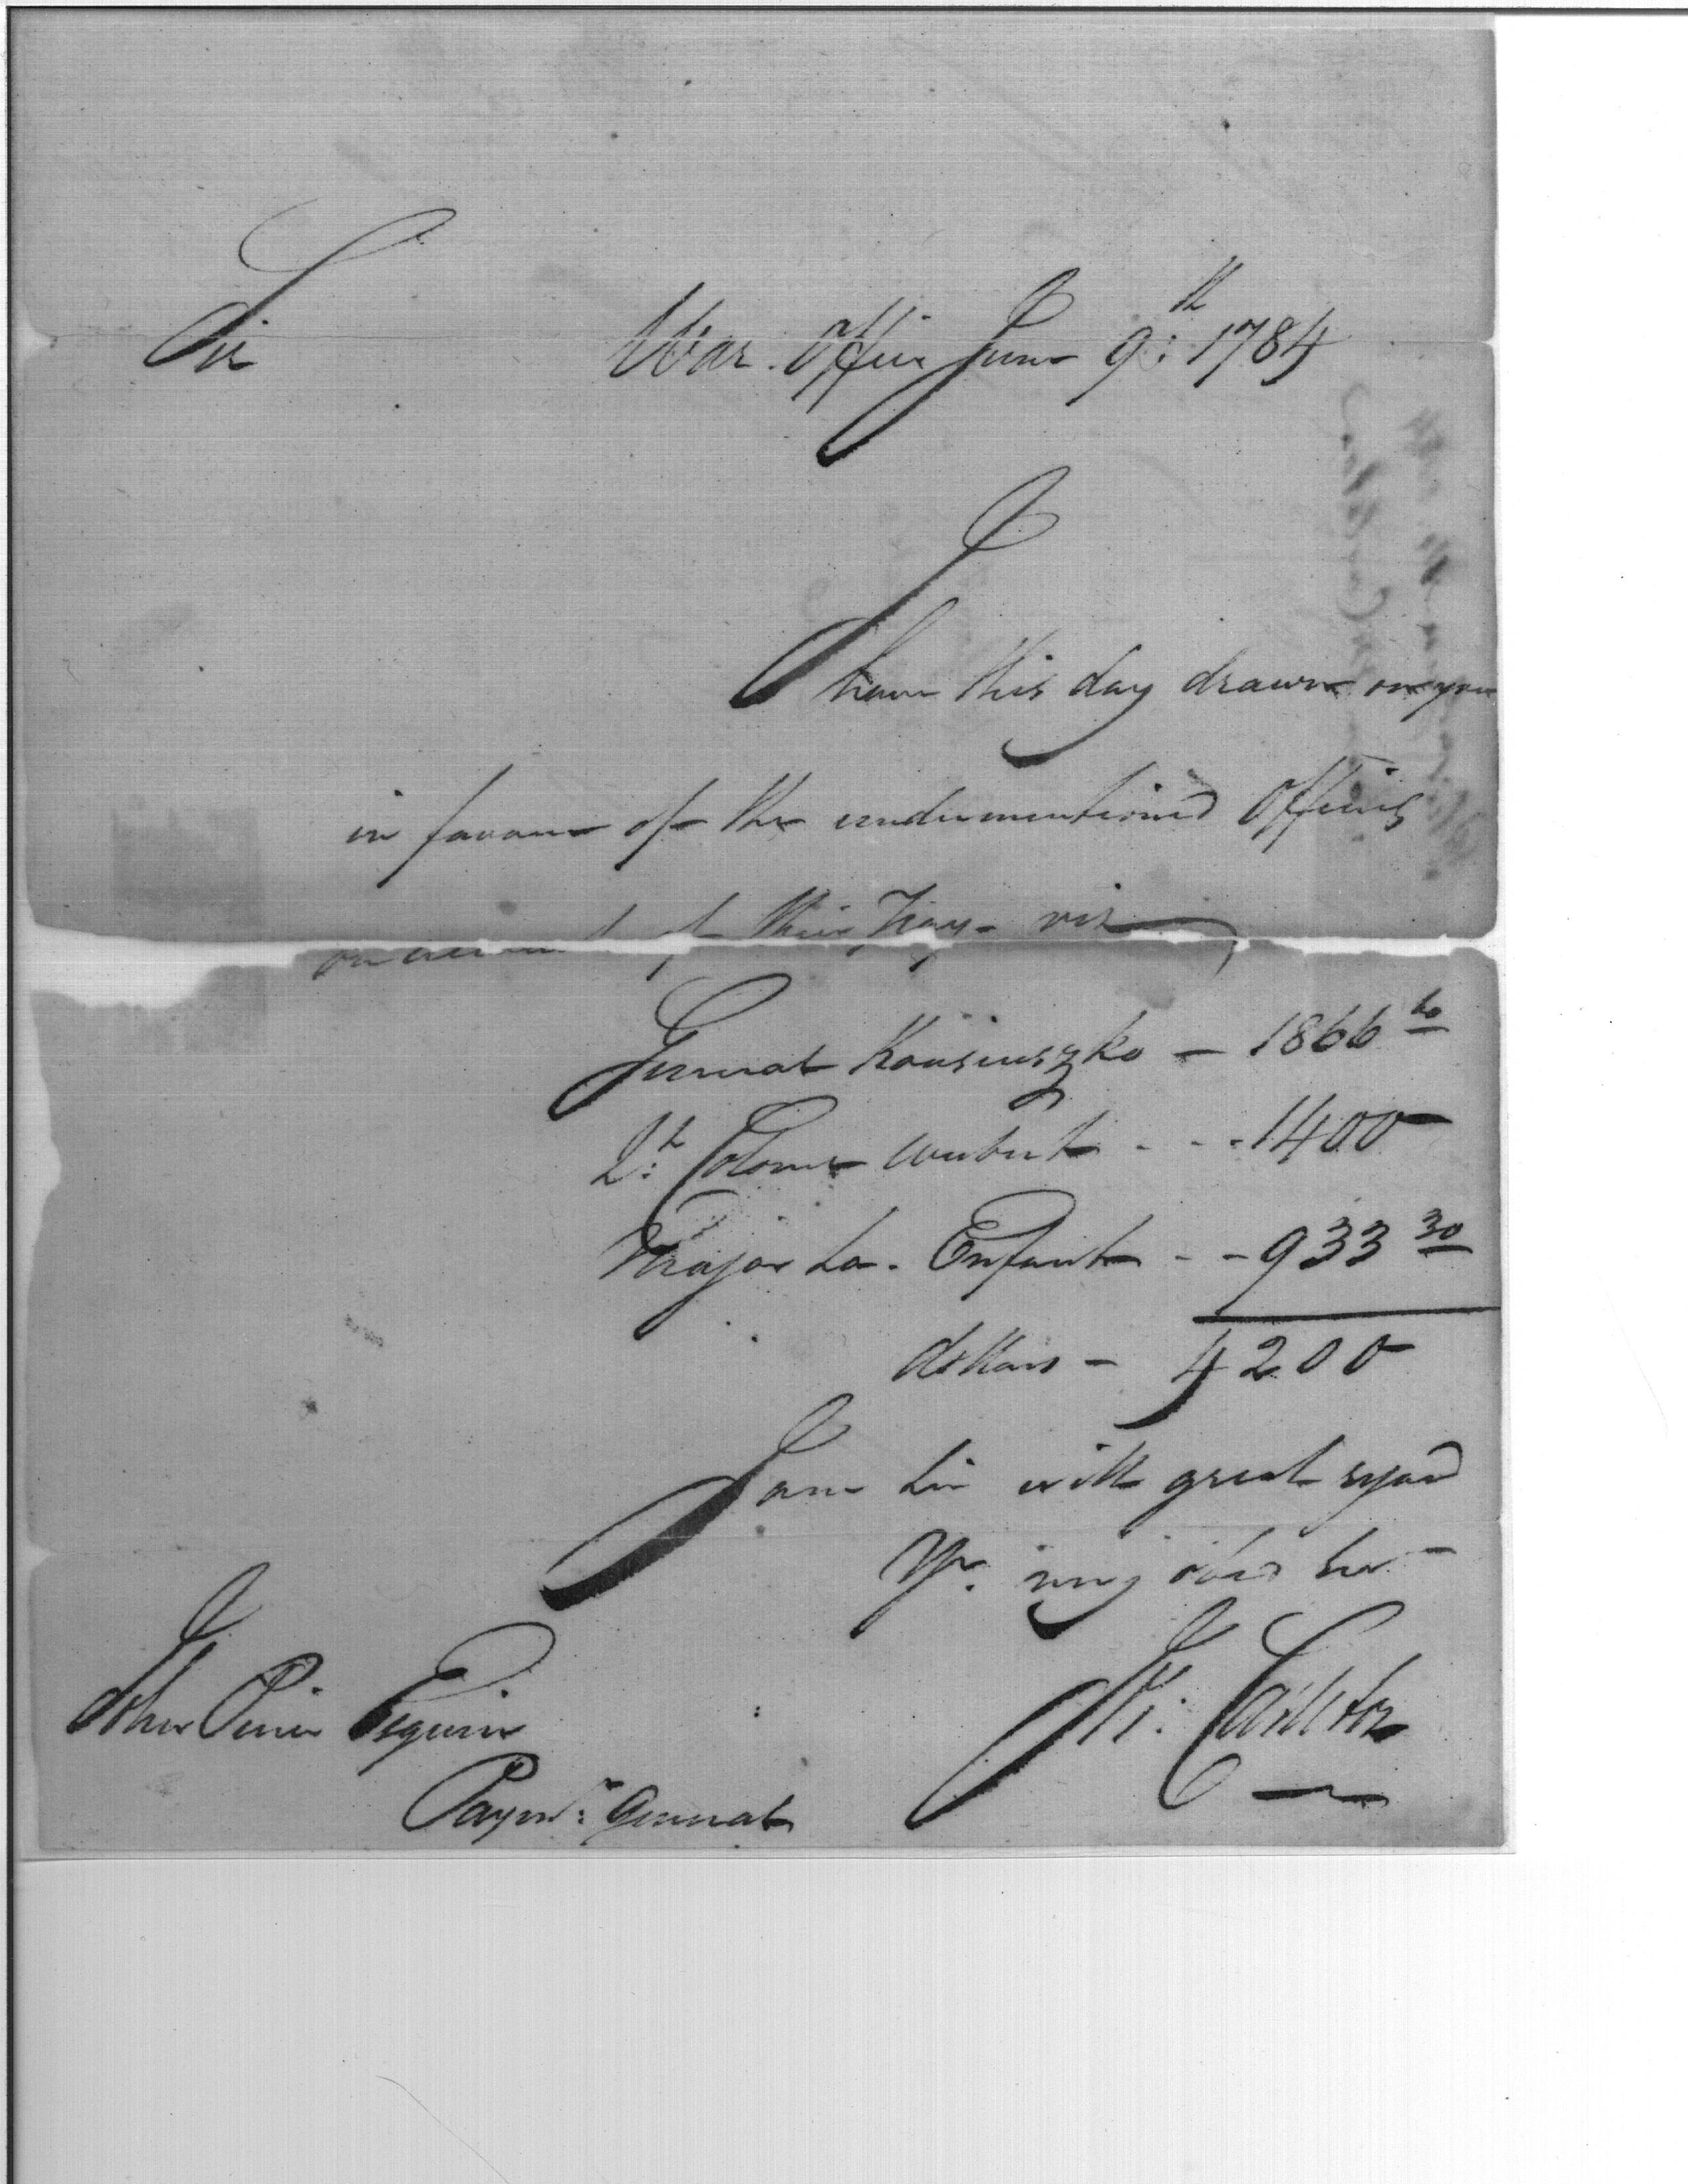 Sir
War Office June 9:th 1784
I
have this day drawn on you
in favour of the undermentioned Officers
on account of their Pay - viz
General Kousiuszko - 1866 60
Lt: Colonel Weibert - - - 1400
Major La. Enfant - - 933 30
dollars - 4200
I am Sir with great regard
Yr. my obed ser
Js: Carleton
John Pierce Esquire
Paymr: General